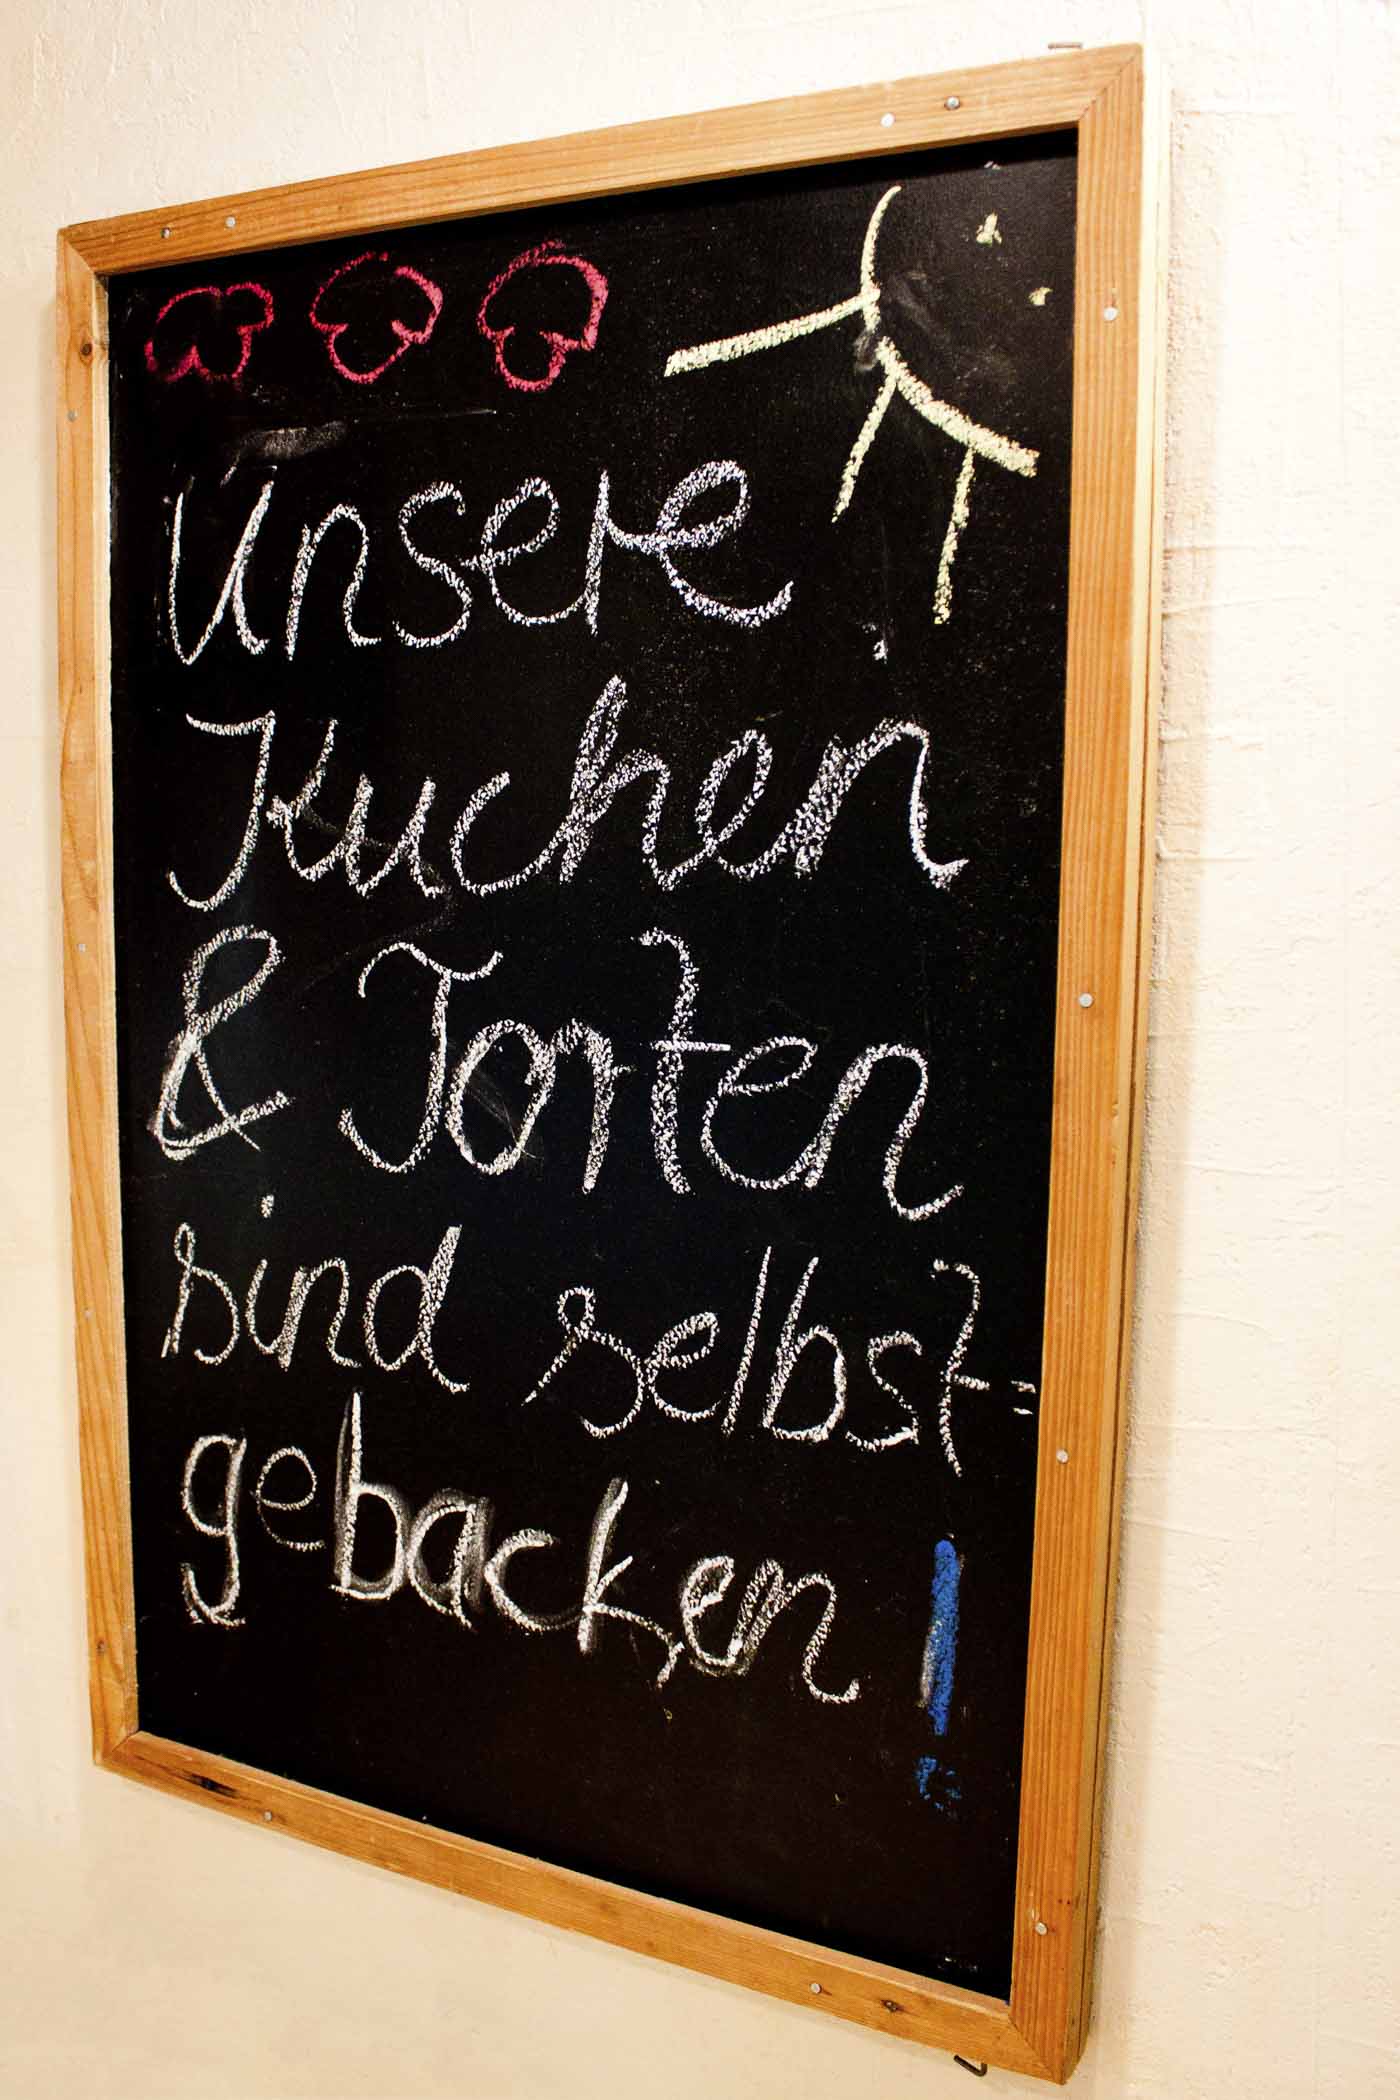 Unsere
Kuchen
& Torten
sind selbst=
gebacken!